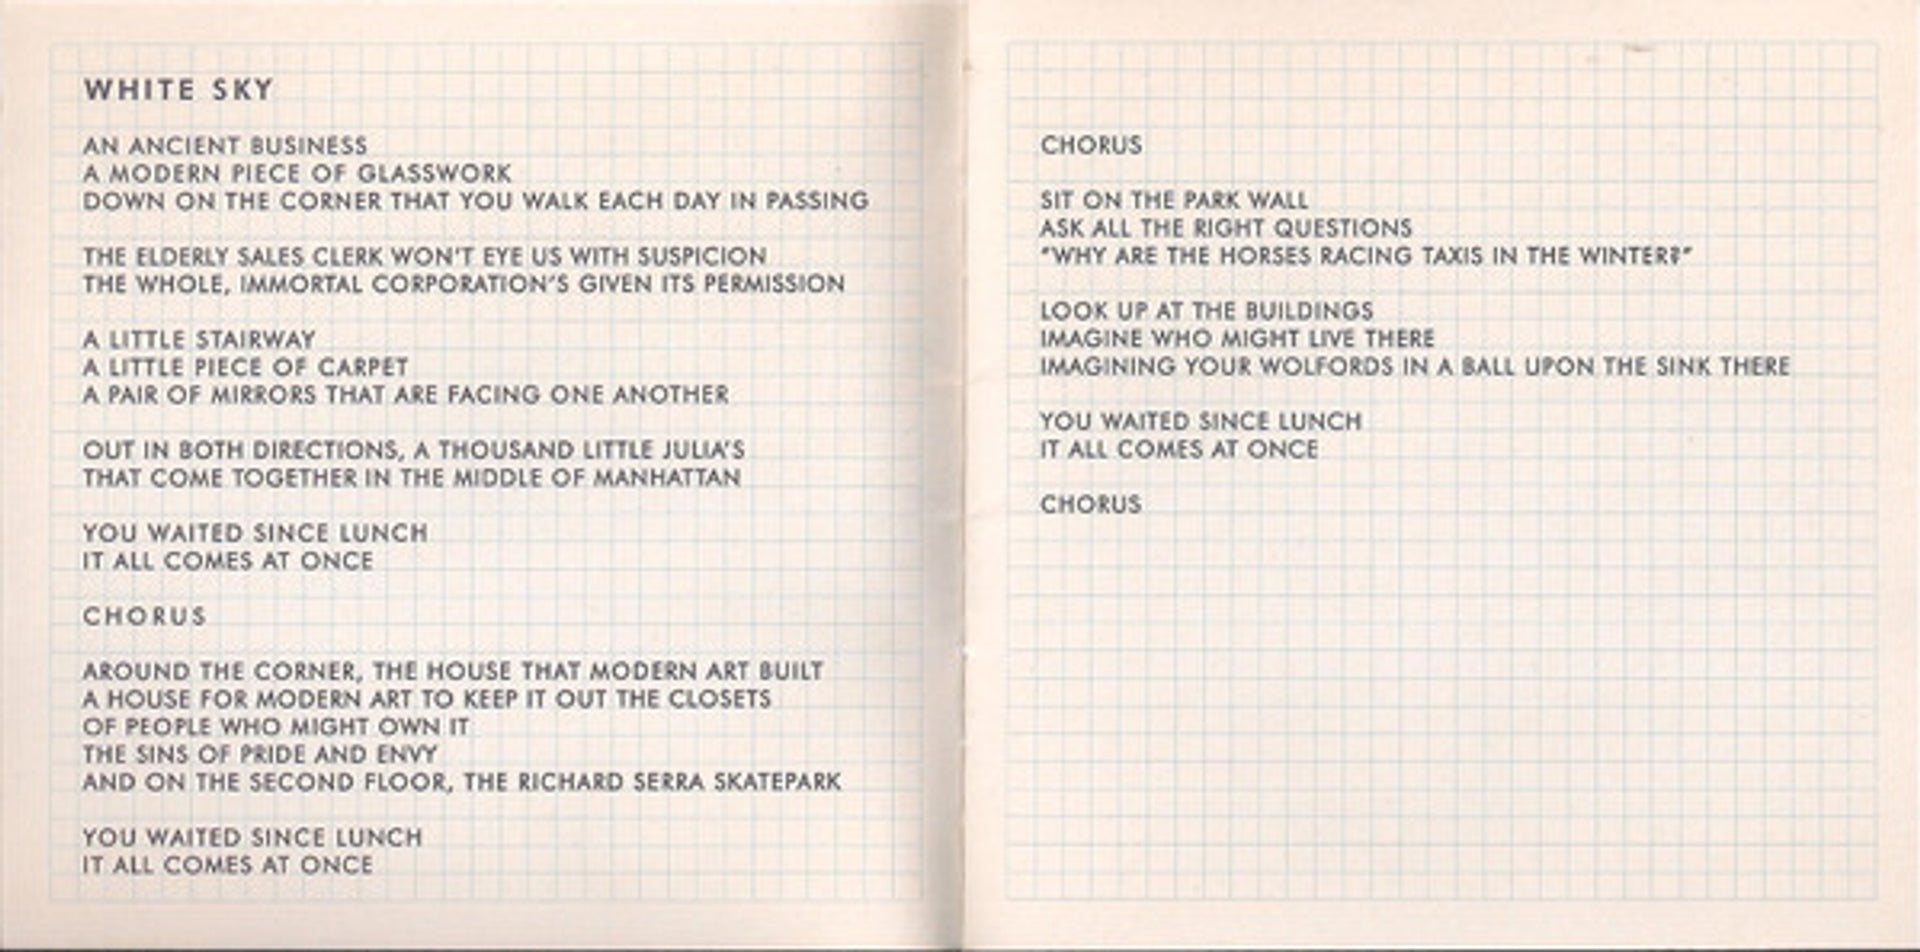 WHITE SKY
AN ANCIENT BUSINESS
A MODERN PIECE OF GLASSWORK
DOWN ON THE CORNER THAT YOU WALK EACH DAY IN PASSING
THE ELDERLY SALES CLERK WON'T EYE US WITH SUSPICION
THE WHOLE, IMMORTAL CORPORATION'S GIVEN ITS PERMISSION
A LITTLE STAIRWAY
A LITTLE PIECE OF CARPET
A PAIR OF MIRRORS THAT ARE FACING ONE ANOTHER
OUT IN BOTH DIRECTIONS, A THOUSAND LITTLE JULIA'S
THAT COME TOGETHER IN THE MIDDLE OF MANHATTAN
YOU WAITED SINCE LUNCH
IT ALL COMES AT ONCE
CHORUS
AROUND THE CORNER, THE HOUSE THAT MODERN ART BUILT
A HOUSE FOR MODERN ART TO KEEP IT OUT THE CLOSETS
OF PEOPLE WHO MIGHT OWN IT
THE SINS OF PRIDE AND ENVY
AND ON THE SECOND FLOOR, THE RICHARD SERRA SKATEPARK
YOU WAITED SINCE LUNCH
IT ALL COMES AT ONCE
CHORUS
SIT ON THE PARK WALL
ASK ALL THE RIGHT QUESTIONS
"WHY ARE THE HORSES RACING TAXIS IN THE WINTER?"
LOOK UP AT THE BUILDINGS
IMAGINE WHO MIGHT LIVE THERE
IMAGINING YOUR WOLFORDS IN A BALL UPON THE SINK THERE
YOU WAITED SINCE LUNCH
IT ALL COMES AT ONCE
CHORUS